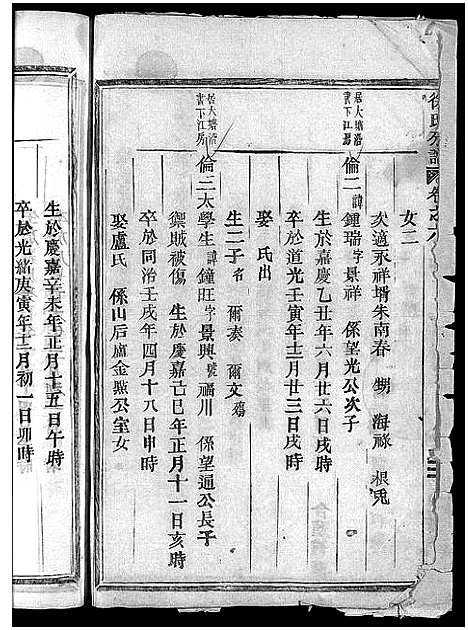 徐氏宗譜 卷之八
女二
次適永祥壻朱南春 甥 海祿 根兎
居大塘沿
書下江房
倫二 諱鍾瑞 字景祥 係望光公次子
生於嘉慶乙丑年六月廿六日戌時
卒於道光壬寅年十二月廿三日戌時
娶 氏出
生二子 名 爾奏 爾文殤
居大塘沿
書下江房
倫三 太學生 諱鐘旺 字景興 號福川 係望通公長子
禦賊被傷 生於慶嘉己巳年正月十一日亥時
卒於同治壬戌年四月十八日申時
娶盧氏 係山后盧金照公室女
生於慶嘉辛未年正月十五日午時
卒於光緒庚寅年十二月初一日卯時